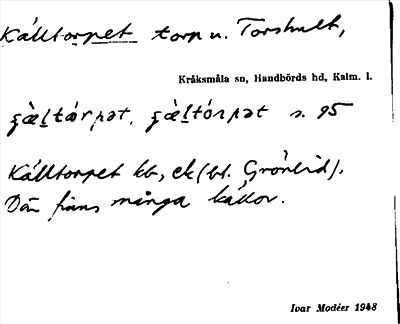 Källtorpet torp u. Torshult,
Kråksmåla sn, Handbörds hd, Kalm. l.
s. 95
Källtorpet kb, ek (bl. Grönlid).
Där finns många källor.
Ivar Modéer 1948